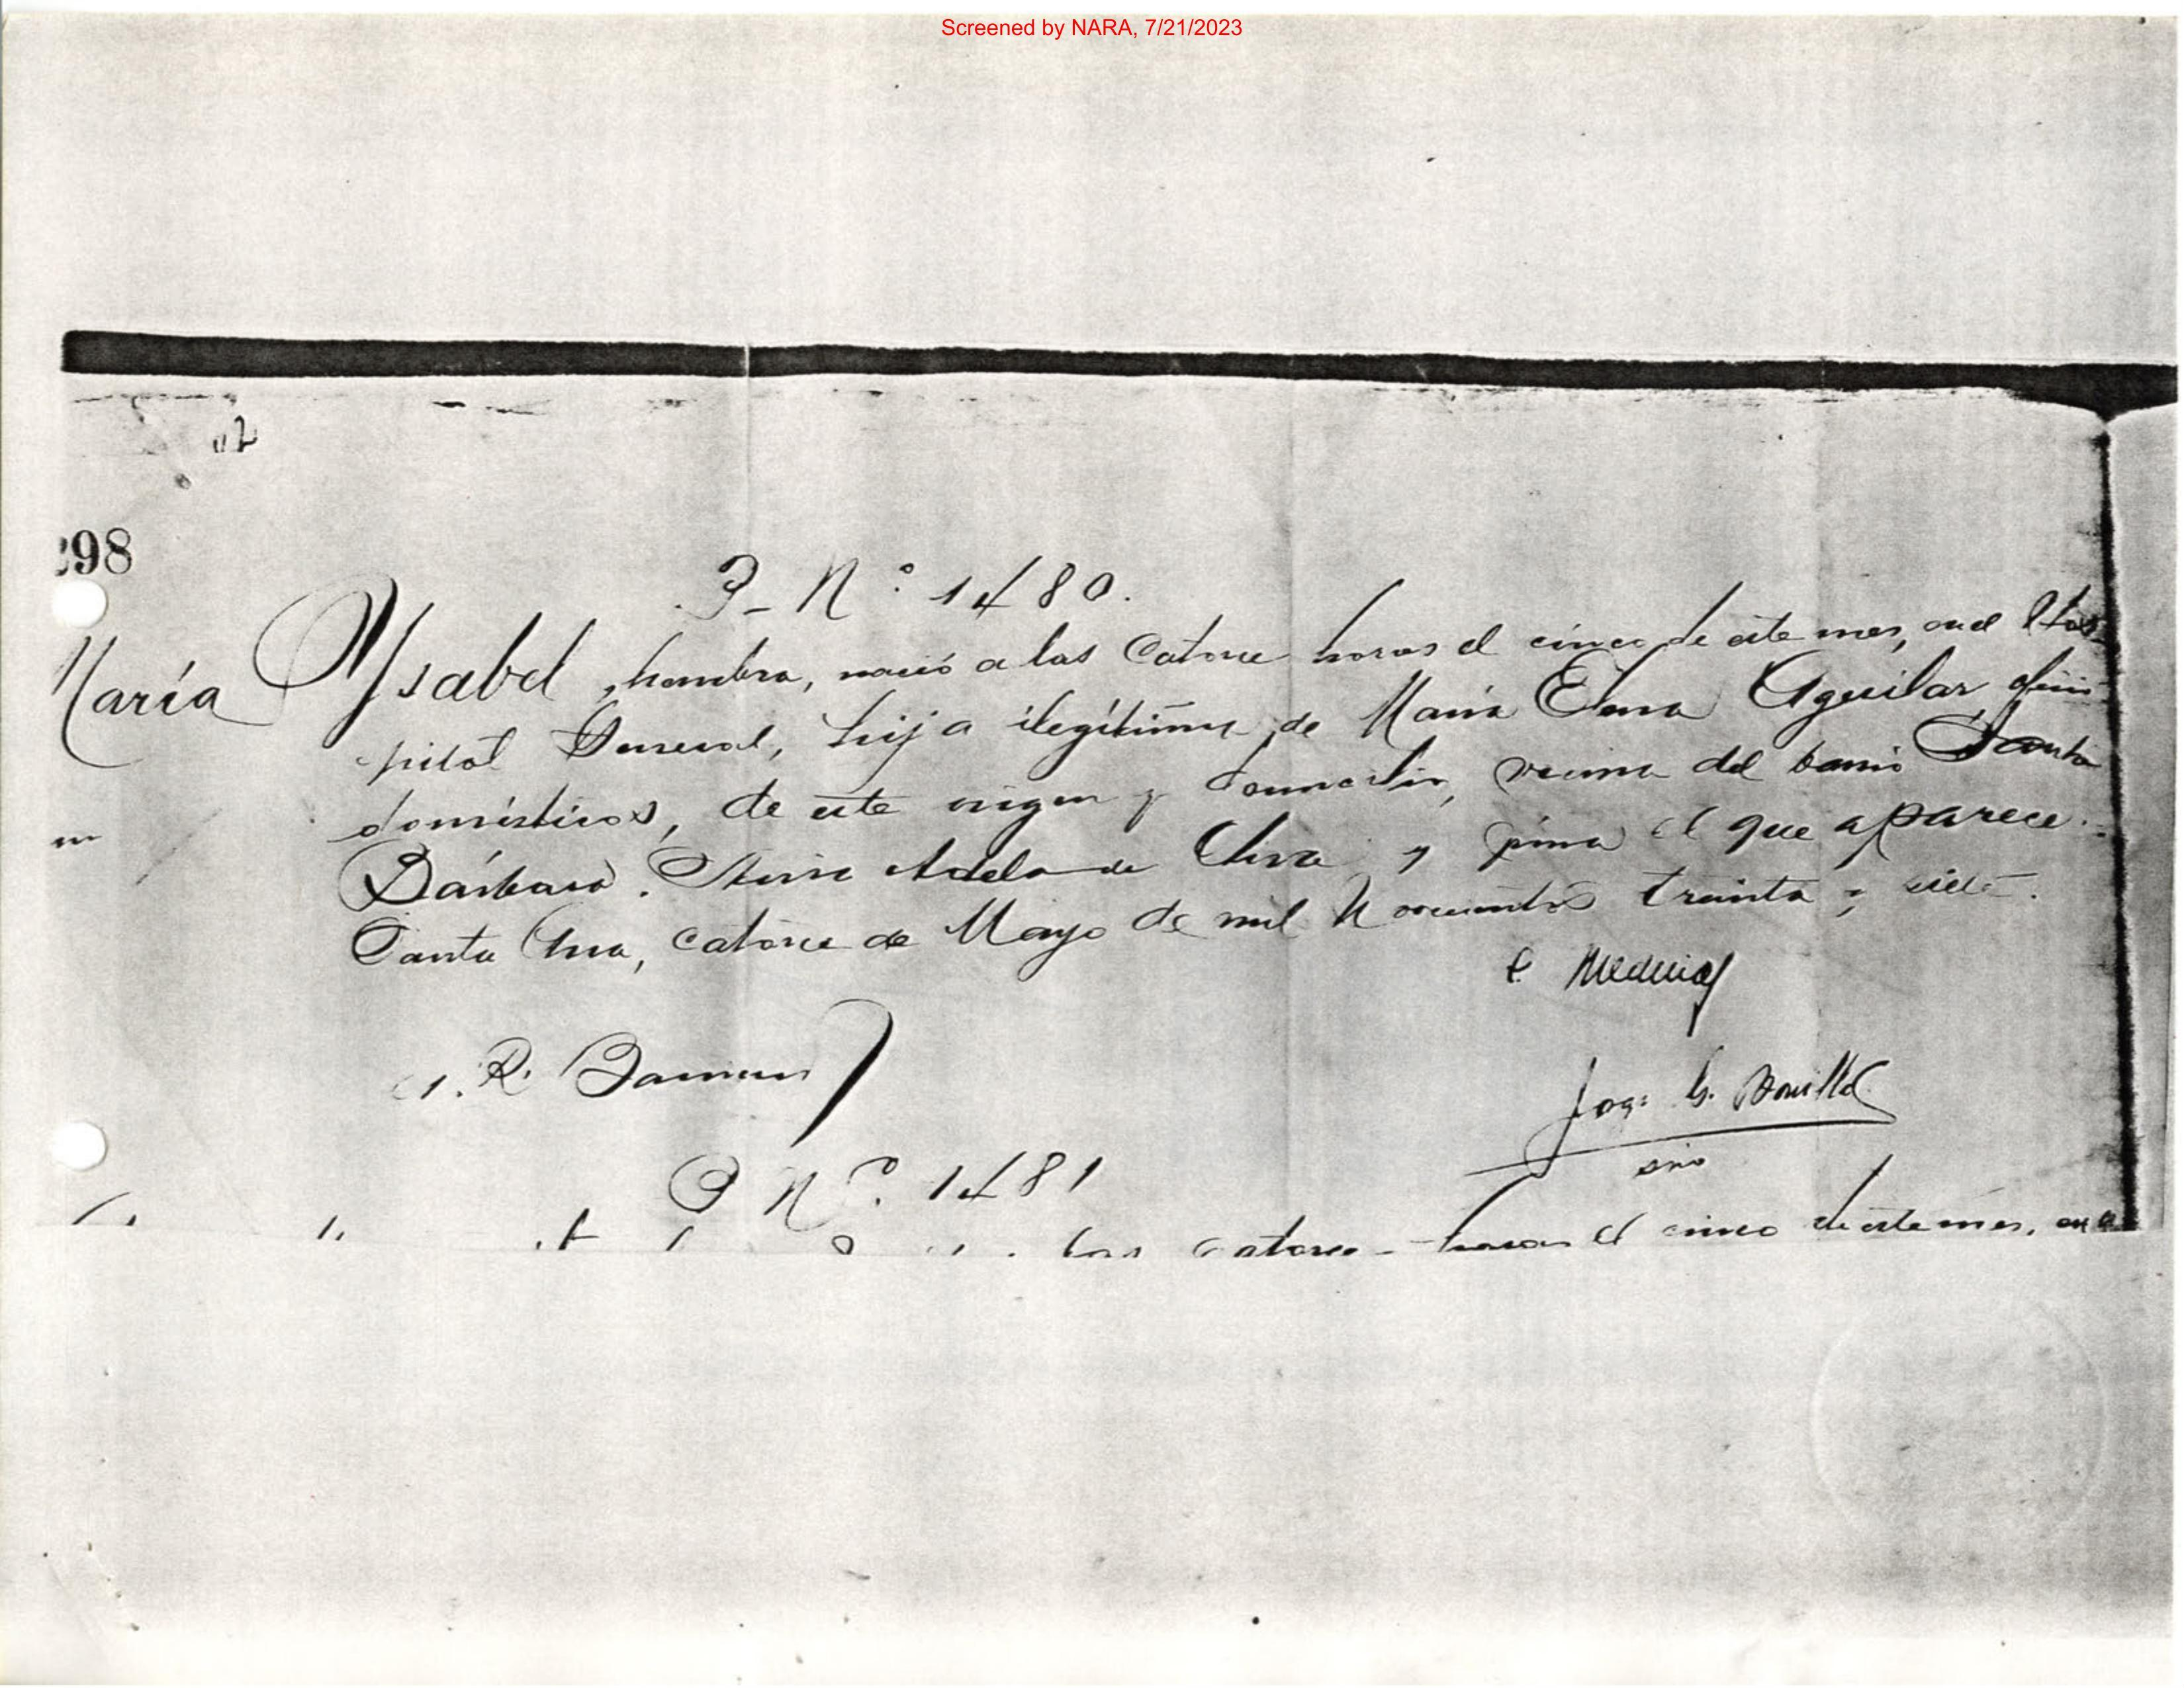 Screened by NARA, 7/21/2023
298
P- N.º 1480.
María Ysabel, hembra, nació a las catorce horas el cinco de este mes, en el Hos-
pital General, hija ilegítima de María Elena Aguilar, oficios
domésticos, de este origen y domicilio, vecina del barrio Santa
Bárbara. Dió aviso y firma el que aparece.
Santa Ana, catorce de Mayo de mil novecientos treinta y siete.
Medina
A. R.
Joaq: G. Bonilla
srio
P N.º 1481
las catorce horas el cinco de este mes, en el